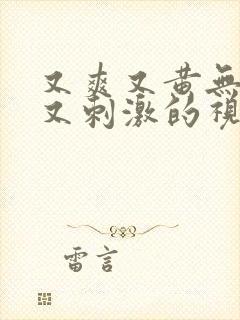 又爽又黄無
又刺激的視
雷言